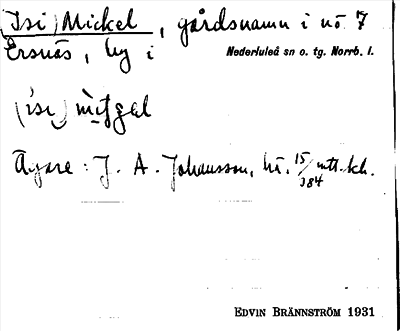 (Isi) Mickel, gårdsnamn i nr 7
Ersnäs, by i Nederluleå sn o. tg. Norrb. l.
Ägare: J. A. Johansson, nr. 15/384 mtl. sk.
EDVIN BRÄNNSTRÖM 1931